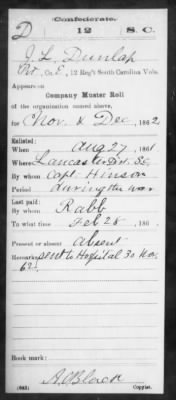 Confederate.
D 12 S.C.
J. L. Dunlap
Pvt, Co. E, 12 Reg't South Carolina Vols.
Appears on
Company Muster Roll
of the organization named above,
for Nov. & Dec, 1862
Enlisted:
When Aug 27, 1861
Where Lancaster Dis. SC.
By whom Capt. Hinson
Period during the war
Last paid:
By whom Rabb
To what time Feb 28, 186
Present or absent absent
Remarks: sent to Hospital 30 Nov.
62.
Book mark:
A. O. Black
(642) Copyist.